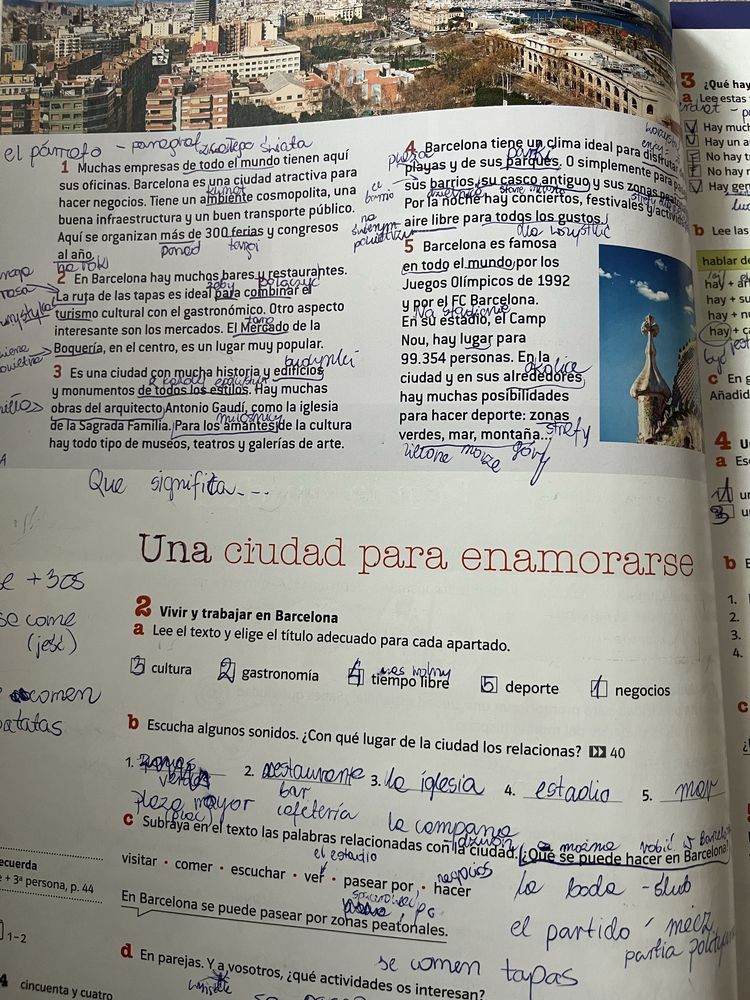 el párrafo - paragraf
1 Muchas empresas de todo el mundo tienen aquí
sus oficinas. Barcelona es una ciudad atractiva para
hacer negocios. Tiene un ambiente cosmopolita, una
buena infraestructura y un buen transporte público.
Aquí se organizan más de 300 ferias y congresos
ponad targi
al año.
na rok
2 En Barcelona hay muchos bares y restaurantes.
żeby połączyć
La ruta de las tapas es ideal para combinar el
turismo cultural con el gastronómico. Otro aspecto
interesante son los mercados. El Mercado de la
Boquería, en el centro, es un lugar muy popular.
budynki
3 Es una ciudad con mucha historia y edificios
y monumentos de todos los estilos. Hay muchas
obras del arquitecto Antonio Gaudí, como la iglesia
de la Sagrada Familia. Para los amantes de la cultura
hay todo tipo de museos, teatros y galerías de arte.
Que significa...
4 Barcelona tiene un clima ideal para disfrutar
playas y de sus parques. O simplemente para
sus barrios, su casco antiguo y sus zonas
Por la noche hay conciertos, festivales y
aire libre para todos los gustos.
dla wszystkich
5 Barcelona es famosa
en todo el mundo por los
Juegos Olímpicos de 1992
y por el FC Barcelona.
Na stadionie
En su estadio, el Camp
Nou, hay lugar para
99.354 personas. En la
okolice
ciudad y en sus alrededores
hay muchas posibilidades
para hacer deporte: zonas
strefy
verdes, mar, montaña...
zielone morze góry
Una ciudad para enamorarse
2 Vivir y trabajar en Barcelona
a Lee el texto y elige el título adecuado para cada apartado.
3 cultura
2 gastronomía
4 tiempo libre
czas wolny
5 deporte
1 negocios
b Escucha algunos sonidos. ¿Con qué lugar de la ciudad los relacionas? 40
1. zonas verdes
plaza mayor
(plac)
2. restaurante
bar
cafetería
3. la iglesia
la campana
4. estadio
5. mar
c Subraya en el texto las palabras relacionadas con la ciudad. ¿Qué se puede hacer en Barcelona?
el estadio negocios
visitar • comer • escuchar • ver • pasear por • hacer
la boda - ślub
En Barcelona se puede pasear por zonas peatonales.
el partido - mecz
d En parejas. Y a vosotros, ¿qué actividades os interesan?
se comen tapas
se + 3os
se come
(jeść)
comen
patatas
ecuerda
e + 3ª persona, p. 44
1-2
4 cincuenta y cuatro
3 ¿Qué hay
a Lee estas
Hay
Hay un
No hay
No hay
Hay
b Lee las
hablar de
hay +
hay +
hay +
hay +
c En
Añadid
4
a
b
1.
2.
3.
4.
c